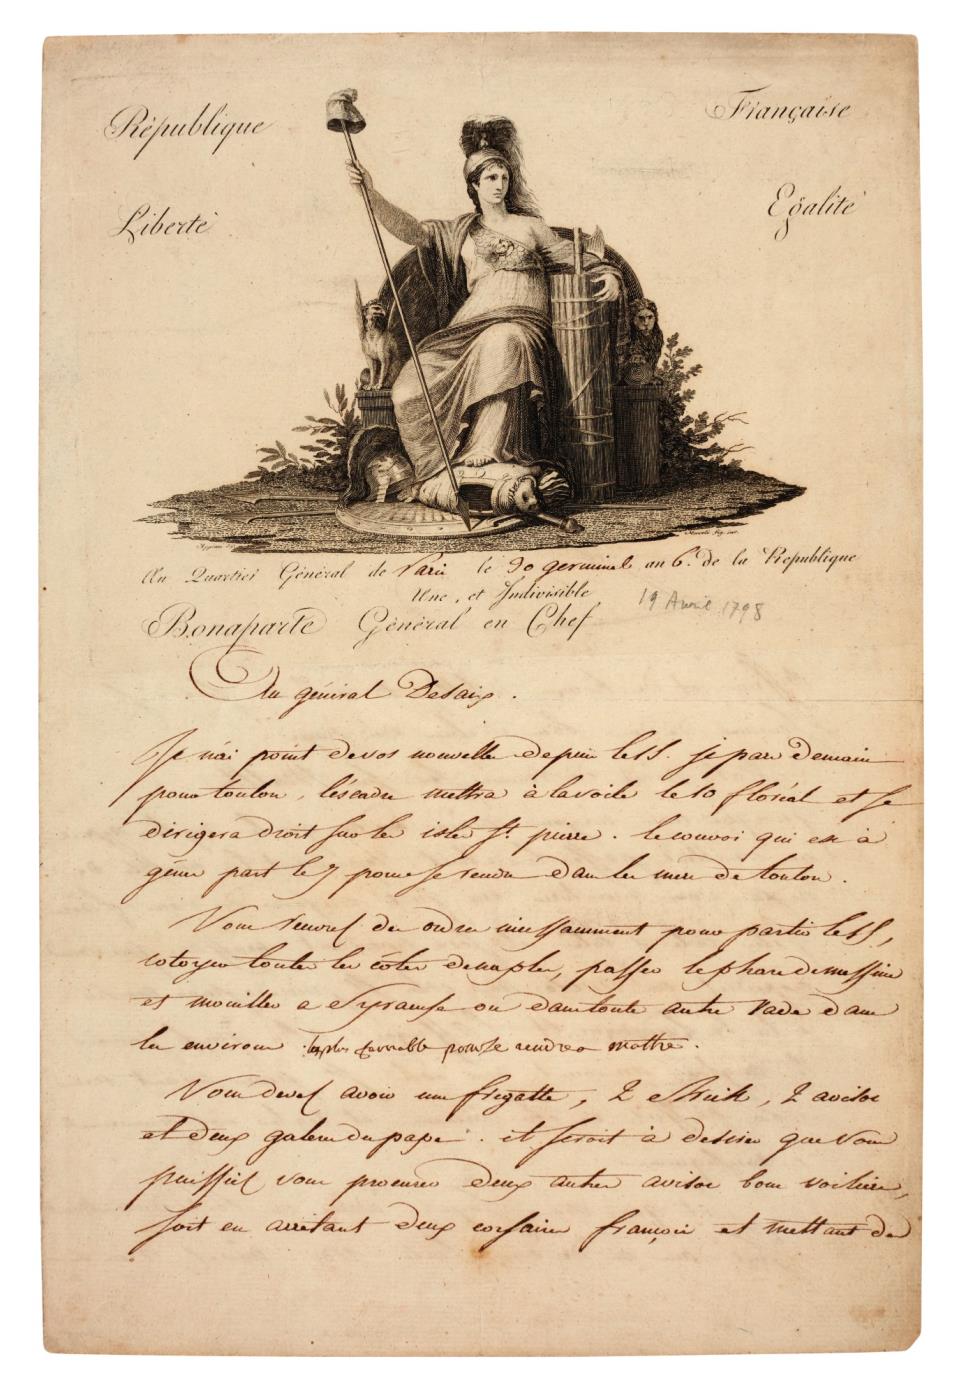 République Française
Liberté Egalité
Au Quartier Général de Paris le 30 germinal an 6.e de la République
Une, et Indivisible
19 Avril 1798
Bonaparte Général en Chef
Au général Desaix.
Je n'ai point de vos nouvelle depuis le 15. je pars demain
pour toulon, l'escadre mettra à la voile le 10 floréal et se
dirigera droit sur les isles St. pierre. le convoi qui est à
gènes part le 7 pour se rendre dans les mers de toulon.
Vous recevrez des ordres incessamment pour partir le 15,
cotoyer toutes les côtes de naples, passer le phare de messine
et mouiller a Syracuse ou dans toute autre rade dans
les environs la plus favorable pour se rendre a malthe.
Vous devez avoir une frégatte, 2 bricks, 2 avisos
et deux galeres du pape. il seroit à desirer que vous
puissiez vous procurer deux autres avisos bons voiliers,
soit en arrêtant deux corsaires françois et mettant des